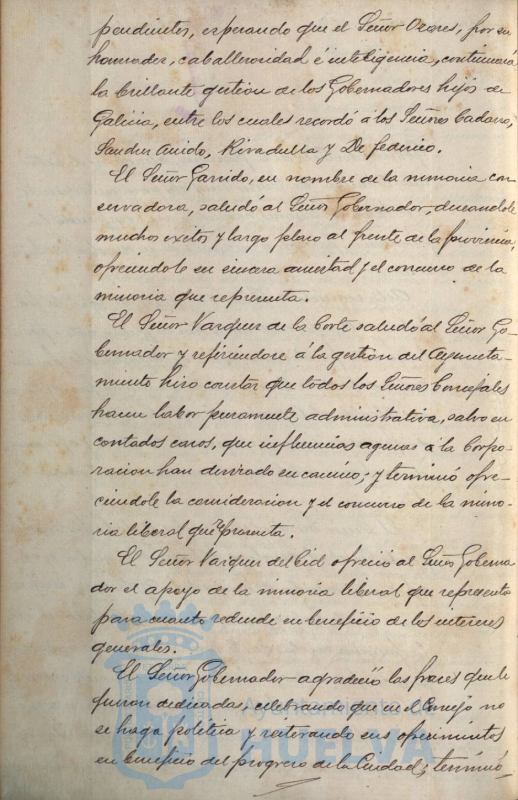 pendientes, esperando que el Señor Ozores, por su
honradez, caballerosidad é inteligencia, continuará
la brillante gestion de los Gobernadores hijos de
Galicia, entre los cuales recordó á los Señores Cadarso,
Sanchez Anido, Rivadulla y De Federico.
El Señor Garrido, en nombre de la minoria con
servadora, saludó al Señor Gobernador, deseandole
muchos exitos y largo plazo al frente de la provincia,
ofreciendole su sincera amistad y el concurso de la
minoria que representa.
El Señor Vazquez de la Corte saludó al Señor Go-
bernador y refiriendose á la gestion del Ayunta-
miento hizo constar que todos los Señores Concejales
hacen labor puramente administrativa, salvo en
contados casos, que influencias agenas á la Corpo-
racion han desviado su camino; y terminó ofre-
ciendole la consideracion y el concurso de la mino-
ria liberal que representa.
El Señor Vazquez del Cid ofreció al Señor Goberna
dor el apoyo de la minoria liberal que representa
para cuanto redunde en beneficio de los intereses
generales.
El Señor Gobernador agradeció las frases que le
fueron dedicadas, celebrando que en el Concejo no
se haga politica y reiterando sus ofrecimientos
en beneficio del progreso de la Ciudad; terminó
Ayuntamiento
HUELVA